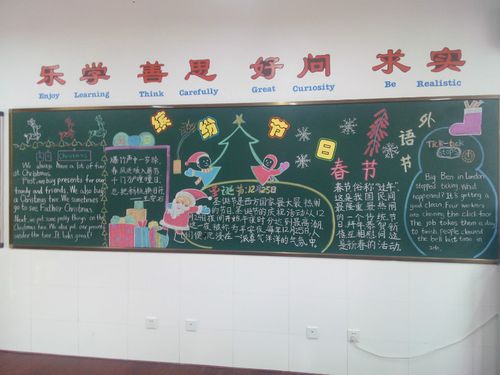 乐学 善思 好问 求实
Enjoy Learning Think Carefully Great Curiosity Be Realistic
缤纷节日
外语节
Christmas
We always have a lot of fun
at Christmas.
First, we buy presents for our
family and friends. We also buy
a Christmas tree. We sometimes
go to see Father Christmas.
Next, we put some pretty things on the
Christmas tree. We also put our presents
under the tree. It looks great!
爆竹声中一岁除,
春风送暖入屠苏
千门万户曈曈日,
总把新桃换旧符
王安石
圣诞节12月25日
圣诞节是西方国家最大最热闹
的节日。圣诞节的庆祝活动从12
人们便沉浸在一派喜气洋洋的气氛中。
春节
春节俗称“过年”,
这是我国民间
最隆重最热闹
的一个传统节
日。拜年恭贺新
禧互相慰问这
是新春的活动。
Tick-tock
stops
Big Ben in London
stopped. Doing what
happened? It's getting a
good clean. Four workers
are cleaning the clock face.
The job takes them a day
to finish. People cleaned
the bell last time in